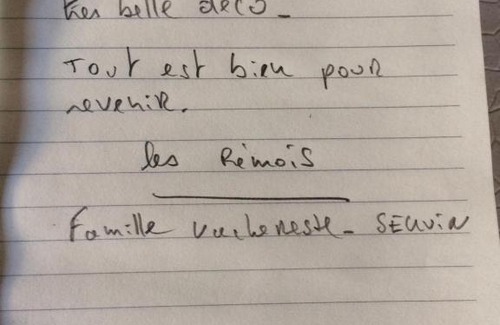 très belle déco_
Tout est bien pour
revenir.
les Rémois
Famille Vachereste_ SEUVIN